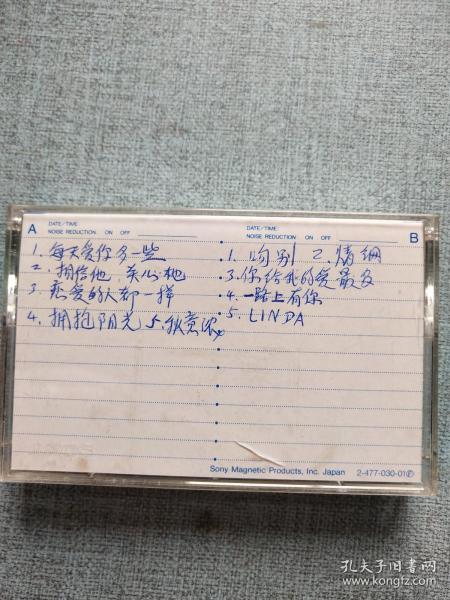 A
DATE/TIME
NOISE REDUCTION ON OFF
1. 每天爱你多一些
2. 相信他,关心她
3. 恋爱的人都一样
4. 拥抱阳光 5. 秋意浓
DATE/TIME
NOISE REDUCTION ON OFF
B
1. 吻别 2. 情网
3. 你给我的爱最多
4. 一路上有你
5. LINDA
Sony Magnetic Products, Inc. Japan 2-477-030-01Ⓟ
孔夫子旧书网
www.kongfz.com